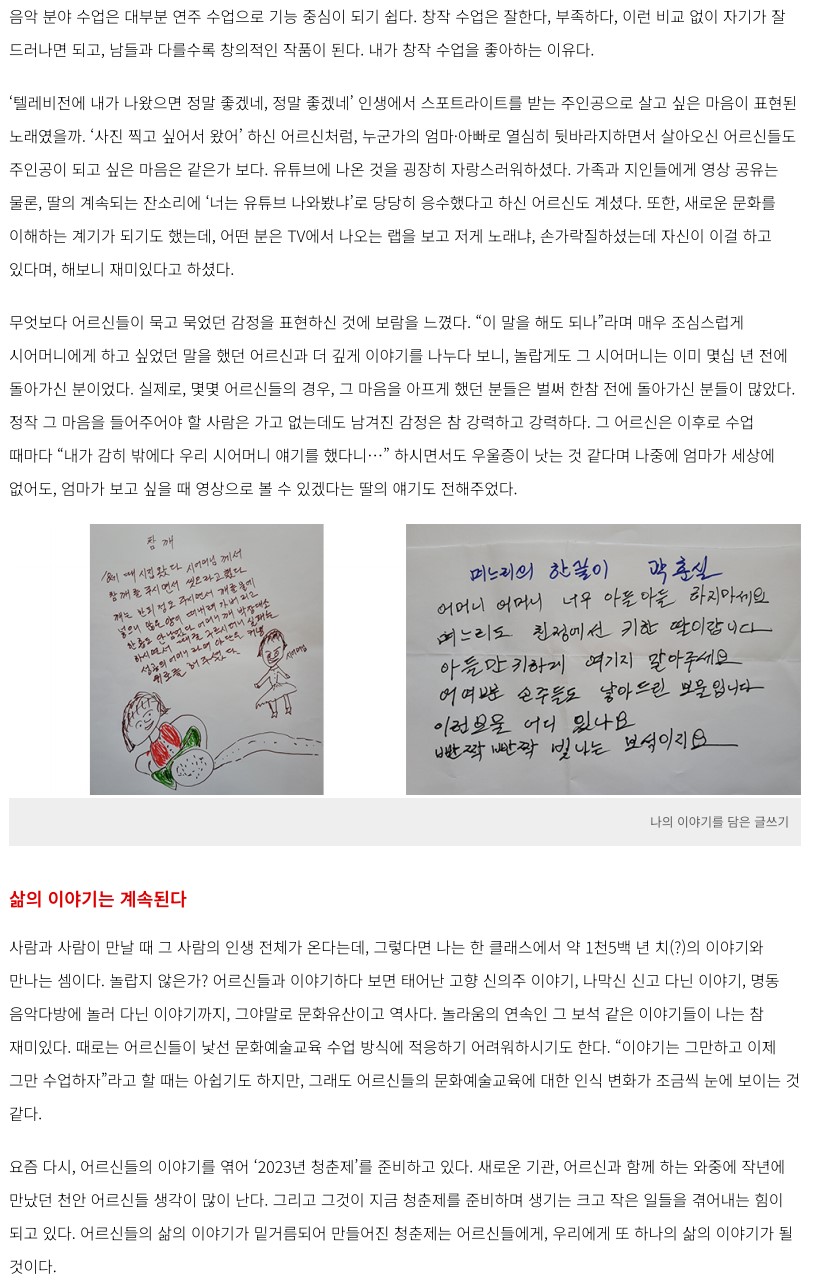 음악 분야 수업은 대부분 연주 수업으로 기능 중심이 되기 쉽다. 창작 수업은 잘한다, 부족하다, 이런 비교 없이 자기가 잘
드러나면 되고, 남들과 다를수록 창의적인 작품이 된다. 내가 창작 수업을 좋아하는 이유다.
‘텔레비전에 내가 나왔으면 정말 좋겠네, 정말 좋겠네’ 인생에서 스포트라이트를 받는 주인공으로 살고 싶은 마음이 표현된
노래였을까. ‘사진 찍고 싶어서 왔어’ 하신 어르신처럼, 누군가의 엄마·아빠로 열심히 뒷바라지하면서 살아오신 어르신들도
주인공이 되고 싶은 마음은 같은가 보다. 유튜브에 나온 것을 굉장히 자랑스러워하셨다. 가족과 지인들에게 영상 공유는
물론, 딸의 계속되는 잔소리에 ‘너는 유튜브 나와봤냐’로 당당히 응수했다고 하신 어르신도 계셨다. 또한, 새로운 문화를
이해하는 계기가 되기도 했는데, 어떤 분은 TV에서 나오는 랩을 보고 저게 노래냐, 손가락질하셨는데 자신이 이걸 하고
있다며, 해보니 재미있다고 하셨다.
무엇보다 어르신들이 묵고 묵었던 감정을 표현하신 것에 보람을 느꼈다. “이 말을 해도 되나”라며 매우 조심스럽게
시어머니에게 하고 싶었던 말을 했던 어르신과 더 깊게 이야기를 나누다 보니, 놀랍게도 그 시어머니는 이미 몇십 년 전에
돌아가신 분이었다. 실제로, 몇몇 어르신들의 경우, 그 마음을 아프게 했던 분들은 벌써 한참 전에 돌아가신 분들이 많았다.
정작 그 마음을 들어주어야 할 사람은 가고 없는데도 남겨진 감정은 참 강력하고 강력하다. 그 어르신은 이후로 수업
때마다 “내가 감히 밖에다 우리 시어머니 얘기를 했다니…” 하시면서도 우울증이 낫는 것 같다며 나중에 엄마가 세상에
없어도, 엄마가 보고 싶을 때 영상으로 볼 수 있겠다는 딸의 얘기도 전해주었다.
참깨
시집 왔다 시어머님께서
참깨를 주시면서 씻으라고 했다
시어머님
며느리의 한풀이 곽춘실
어머니 어머니 너무 아들아들 하지마세요
며느리도 친정에선 키한 딸이랍니다
아들만 키하게 여기지 말아주세요
어여쁜 손주들도 낳아드린 보물입니다
이런보물 어디 있나요
빤짝 빤짝 빛나는 보석이지요
나의 이야기를 담은 글쓰기
삶의 이야기는 계속된다
사람과 사람이 만날 때 그 사람의 인생 전체가 온다는데, 그렇다면 나는 한 클래스에서 약 1천5백 년 치(?)의 이야기와
만나는 셈이다. 놀랍지 않은가? 어르신들과 이야기하다 보면 태어난 고향 신의주 이야기, 나막신 신고 다닌 이야기, 명동
음악다방에 놀러 다닌 이야기까지, 그야말로 문화유산이고 역사다. 놀라움의 연속인 그 보석 같은 이야기들이 나는 참
재미있다. 때로는 어르신들이 낯선 문화예술교육 수업 방식에 적응하기 어려워하시기도 한다. “이야기는 그만하고 이제
그만 수업하자”라고 할 때는 아쉽기도 하지만, 그래도 어르신들의 문화예술교육에 대한 인식 변화가 조금씩 눈에 보이는 것
같다.
요즘 다시, 어르신들의 이야기를 엮어 ‘2023년 청춘제’를 준비하고 있다. 새로운 기관, 어르신과 함께 하는 와중에 작년에
만났던 천안 어르신들 생각이 많이 난다. 그리고 그것이 지금 청춘제를 준비하며 생기는 크고 작은 일들을 겪어내는 힘이
되고 있다. 어르신들의 삶의 이야기가 밑거름되어 만들어진 청춘제는 어르신들에게, 우리에게 또 하나의 삶의 이야기가 될
것이다.